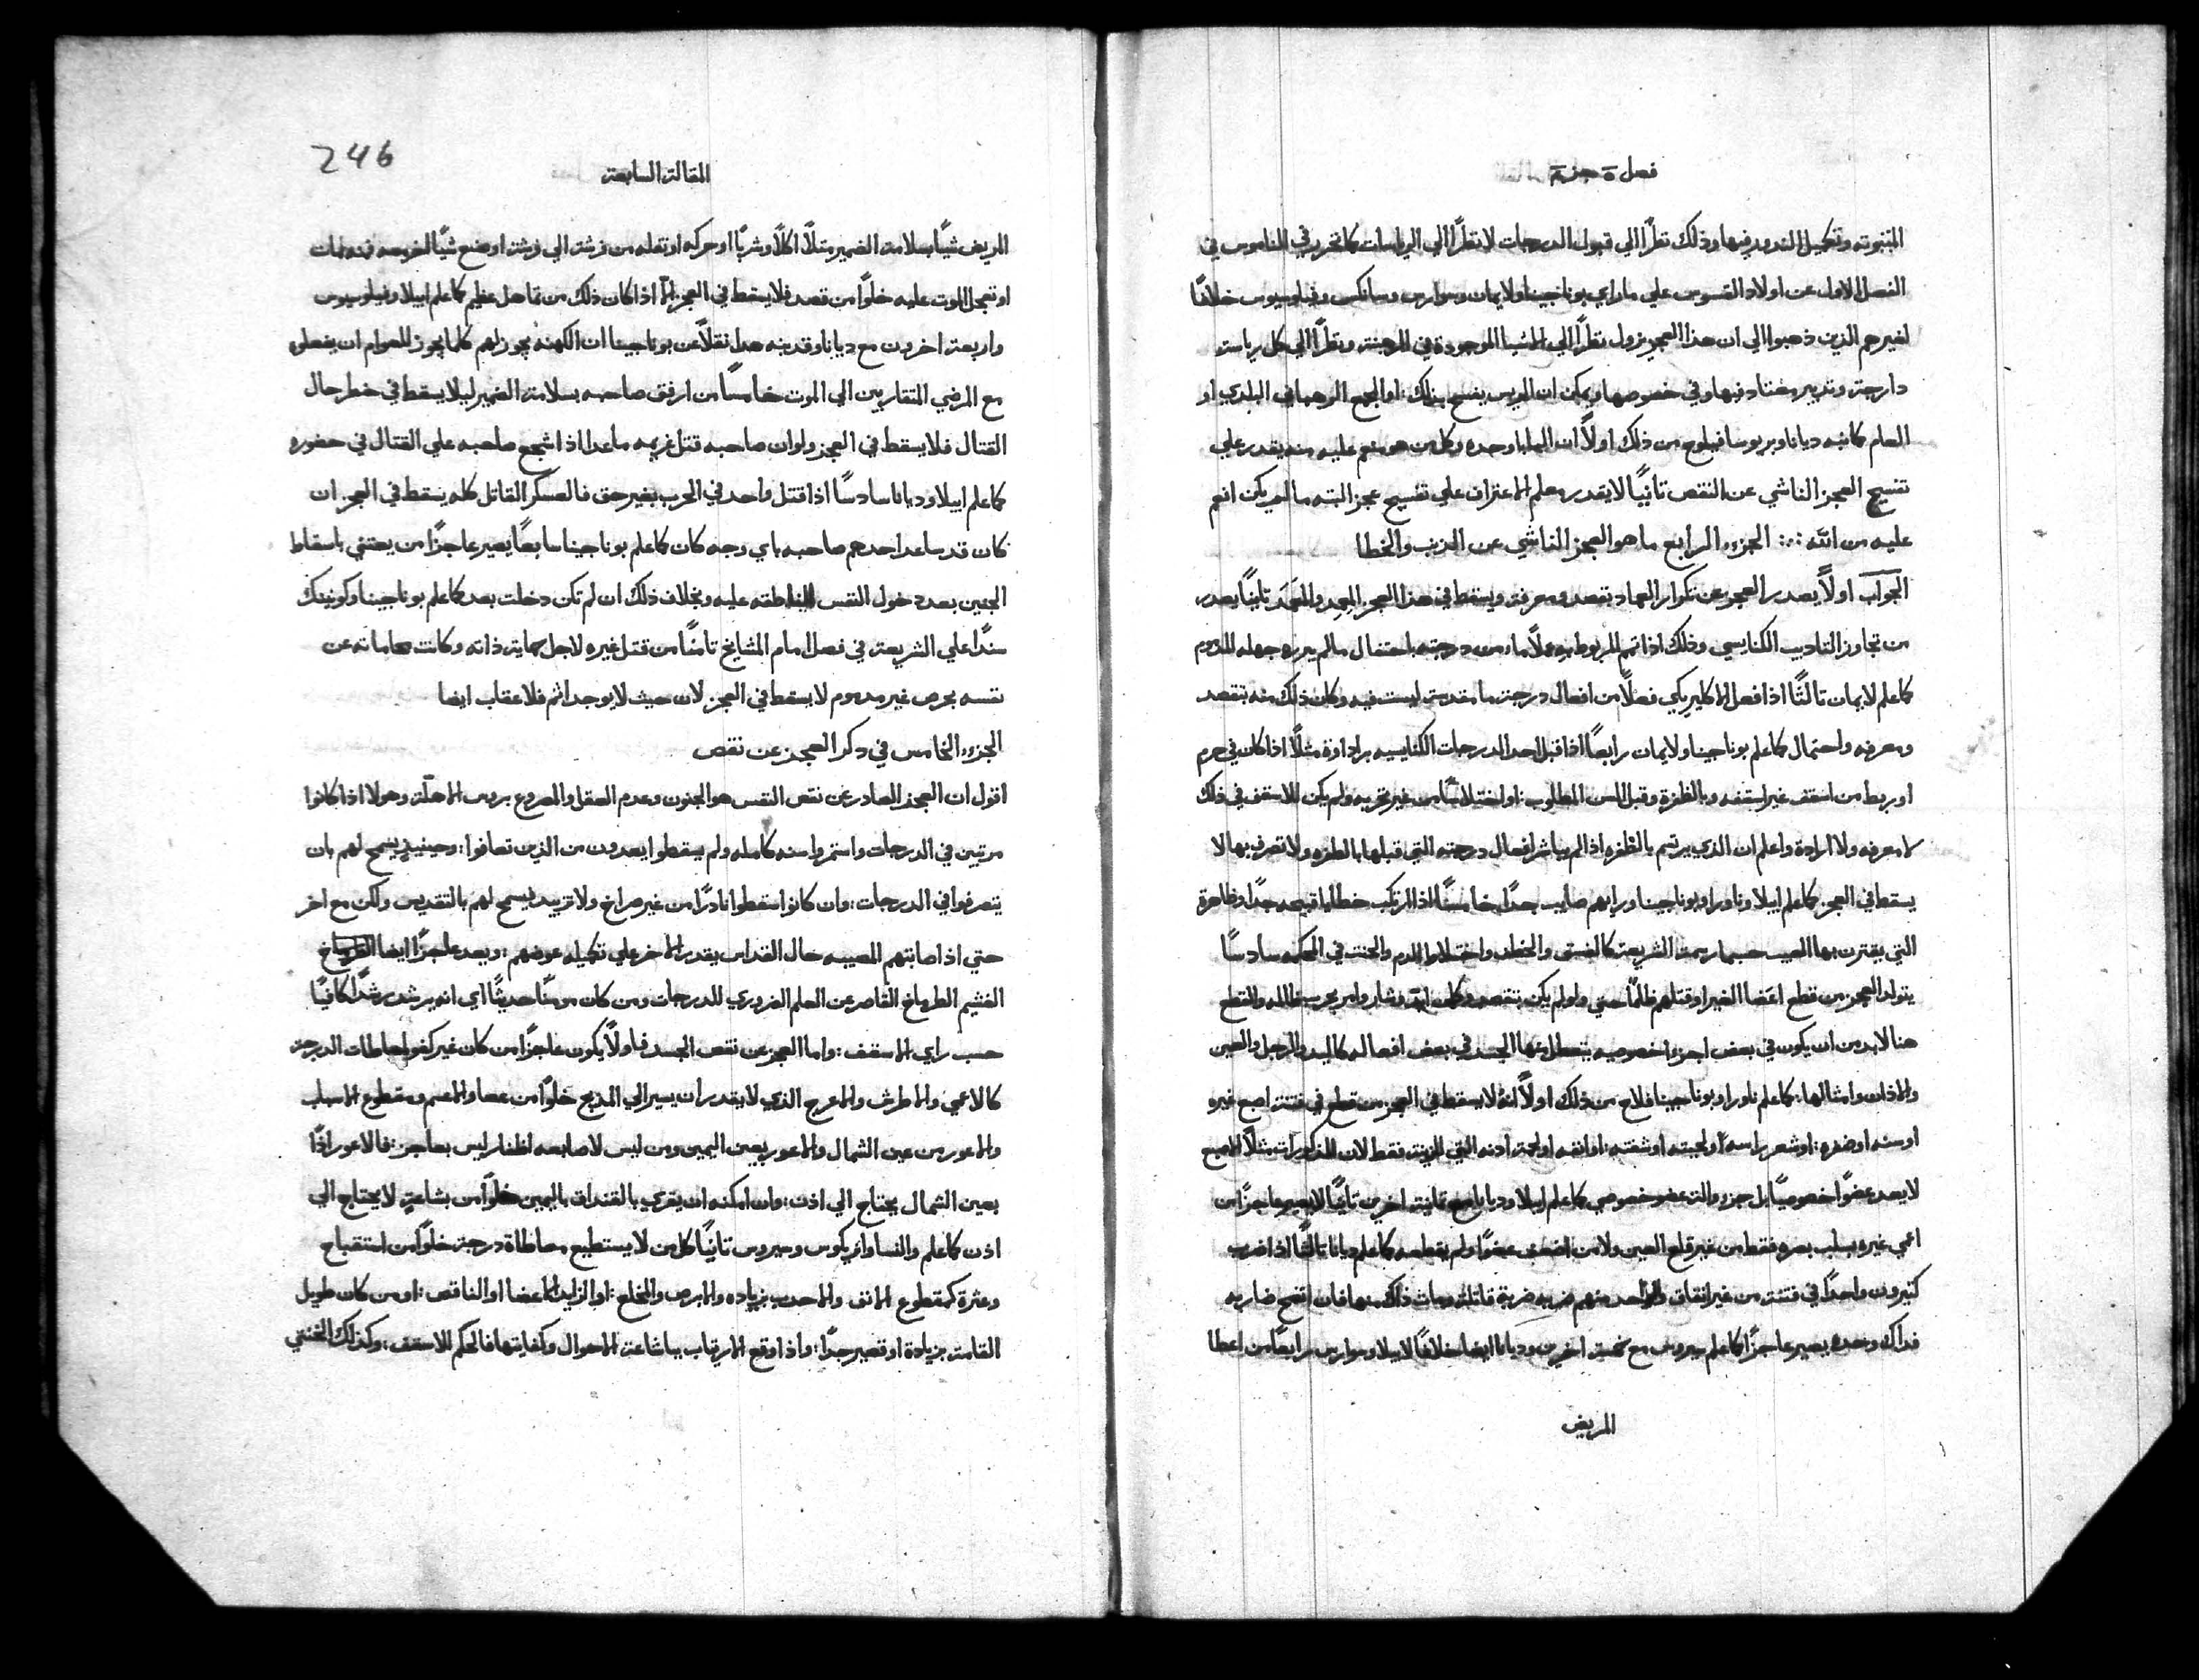 فصل ة جزء
المثبوته وتكميل الندور فيها وذلك نظرًا الي قبول الدرجات لا نظرًا الي الرياسات كما تحرر في الناموس في
الفصل الاول عن اولاد القسوس علي ما راي بوناجينا ولايمان وسوارس وسانكس وفيلوسيوس خلافًا
لغيرهم الذين ذهبوا الي ان هذا العجز يزول نظرًا الي الاشيا الموجودة في الرهبنة ونظرًا الي كل رياسة
دارجة وتدبير معتاد فيها وفي خصوصها ويمكن ان الريس يفسح بذلك: او المجمع الرهباني البلدي او
العام كما نبه ديانا وبربوسا فيلوح من ذلك اولاً ان البابا وحده وكل من هو منعم عليه منه يقدر علي
تفسيح العجز الناشي عن النقص تانيًا لا يقدر معلم الاعتراف علي تفسيح عجز البته ما لم يكن انعم
عليه من الله ∴ الجزء الرابع ما هو العجز الناشي عن الذنب والخطا
الجواب اولاً يصدر العجز عن تكرار العماد بقصد ومعرفة ويسقط في هذا العجز المعمِد والمعمَد تانيًا يصدر
من تجاوز التاديب الكنايسي وذلك اذا تمم المربوط به عملاً ما من درجته باحتفال ما لم يبرره جهله الملزوم
كما علم لايمان تالتًا اذا فعل الاكليريكي فعلاً من افعال درجة ما مقدسة ليست فيه وكان ذلك منه بقصد
ومعرفه واحتمال كما علم بوناجينا ولايمان رابعًا اذا قبل احد الدرجات الكنايسيه برداوة مثلاً اذا كان في حرم
او ربط من اسقف غير اسقفه وبالظفرة وقبل السن المطلوب: او اختلاسًا من غير تجربه ولم يكن للاسقف في ذلك
لا معرفه ولا ارادة واعلم ان الذي يرتسم بالظفره اذا لم يباشر افعال درجته التي قبلها بالظفره ولا تصرف بها لا
يسقط في العجز كما علم ايبلا وناورا وبوناجينا ورايهم صايب جدًا خامسًا اذا ارتكب خطايا قبيحه جدًا وظاهرة
التي يقترن بها العيب حسبما رسمت الشريعة كالفسق والخطف واختلاط الدم والحنث في المحكمه سادسًا
يتولد العجز من قطع اعضا الغير او قتلهم ظلمًا حتي ولو لم يكن بقصد وكان وشار وامر بحرب ظالمه والقطع
هنا لا بد من ان يكون في بعض اجزاء خصوصيه يتعطل عنها الجسد في بعض افعاله كاليد والرجل والعين
والاذان وامثالها: كما علم ناورا وبوناجينا فلاح من ذلك اولاً انه لا يسقط في العجز من قطع في فتنة اصبع غيره
او سنه او ضفره: او شعر راسه او لحيته او شفته: او انفه او لحمة اذنه التي للزينة فقط لان المذكورات مثلاً الاصبع
لا يعد عضوًا خصوصيًا بل جزء والة عضو خصوصي كما علم ايبلا وديانا مع تمانية اخرين تانيًا لا يصير عاجزًا من
اعمي غيره بسلب بصره فقط من غير قلع العين ولا من اضعف عضوًا ولم يقطعه كما علم ديانا تالتًا اذا ضرب
كتيرون واحدًا في فتنة من غير اتفاق والواحد منهم ضربه ضربة قاتلة ومات ذاك منها فان اتضح ضاربه
فداك وحده يصير عاجزًا كما علم سيروس مع خمسة اخرين وديانا ايضا خلافًا لايبلا وسوارس رابعًا من اعطا
المريض
246
المقالة السابعة
المريض شيًا بسلامة الضمير مثلاً اكلاً وشربًا او حركه او نقله من فرشة الي فرشة او ضع شيًا لغرسه فمنه مات
او تعجل الموت عليه خلوًا من قصد فلا يسقط في العجز الاّ اذا كان ذلك من تماهل عظيم كما علم ايبلا وفيلوسيوس
واربعة اخرون مع ديانا وقد نبه هذا نقلاً عن بوناجينا ان الكهنه يجوز لهم كلما يجوز للعوام ان يفعلوه
مع المرضي المتقاربين الي الموت خامسًا من ارفق صاحبه بسلامة الضمير ليلا يسقط في خطر حال
القتال فلا يسقط في العجز ولو ان صاحبه قتل غريمه ما عدا اذا شجع صاحبه علي القتال في حضوره
كما علم ايبلا وديانا سادسًا اذا قتل واحد في الحرب بغير حق فالعسكر القاتل كله يسقط في العجز ان
كان قد ساعد احدهم صاحبه باي وجه كان كما علم بوناجينا سابعًا يصير عاجزًا من يعتني باسقاط
الجنين بعد دخول النفس الناطقه عليه وبخلاف ذلك ان لم تكن دخلت بعد كما علم بوناجينا وكونينك
سندًا علي الشريعة في فصل امام المشايخ تامنًا من قتل غيره لاجل حماية ذاته وكانت محاماته عن
نفسه بحرص غير مدموم لا يسقط في العجز لان حيث لا يوجد اثم فلا عقاب ايضا
الجزء الخامس في دكر العجز عن نقص
اقول ان العجز الصادر عن نقص النفس هو الجنون وعدم العقل والمصروع بروس الاهلّة وهولا اذا كانوا
مرتين في الدرجات واستمروا سنه كامله ولم يسقطوا يعدون من الذين تعافوا: وحينيذٍ يسمح لهم بان
يتصرفوا في الدرجات: وان كانوا سقطوا نادرًا من غير صراخ ولا تزبيد يسمح لهم بالتقديس ولكن مع اخر
حتي اذا اصابتهم المصيبه حال القداس يقدر الاخر علي تكميله عوضهم: ويعد عاجزًا ايضا
الغشيم الطرماخ القاصر عن العلم الضروري للدرجات ومن كان مومنًا حديثًا اي انه ير شد رشدًا كافيًا
حسب راي الاسقف: واما العجز عن نقص الجسد فاولاً يكون عاجزًا من كان غير كفو لمعاطات الدرجة
كالاعمي والاطرش والاعرج الذي لا يقدر ان يسير الي المذبح خلوًا من عصا والاعسم ومقطوع الاسباب
والاعور من عين الشمال والاعور بعين اليمين ومن ليس لاصابعه اظفار ليس بعاجز: فالاعور اذًا
بعين الشمال يحتاج الي اذن: وان امكنه ان يقري بالقنداق باليمين خلوًا من بشاعةٍ لا يحتاج الي
اذن كما علم والنسا وانريكوس وسيروس تانيًا كل من لا يستطيع معاطاة درجة خلوًا من استقباح
وعثرة كمقطوع الانف والاحدب بزياده والابرص والمخلع: او الزايد الاعضا او الناقص: او من كان طويل
القامة بزيادة او قصير جدًا: واذا وقع الارتياب ببشاعة الاحوال وكفايتها فالحكم للاسقف: وكذلك الخنثي